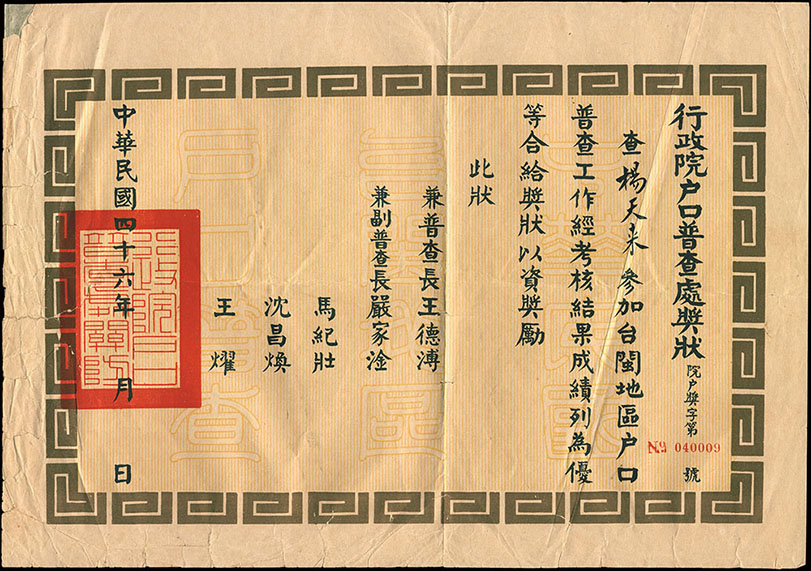 行政院户口普查處獎狀
院户獎字第
№ 040009
號
查楊天來參加台閩地區户口
普查工作經考核結果成績列為優
等合給獎狀以資獎勵
此狀
兼普查長王德溥
兼副普查長嚴家淦
馬紀壯
沈昌煥
王燿
中華民國四十六年 月 日